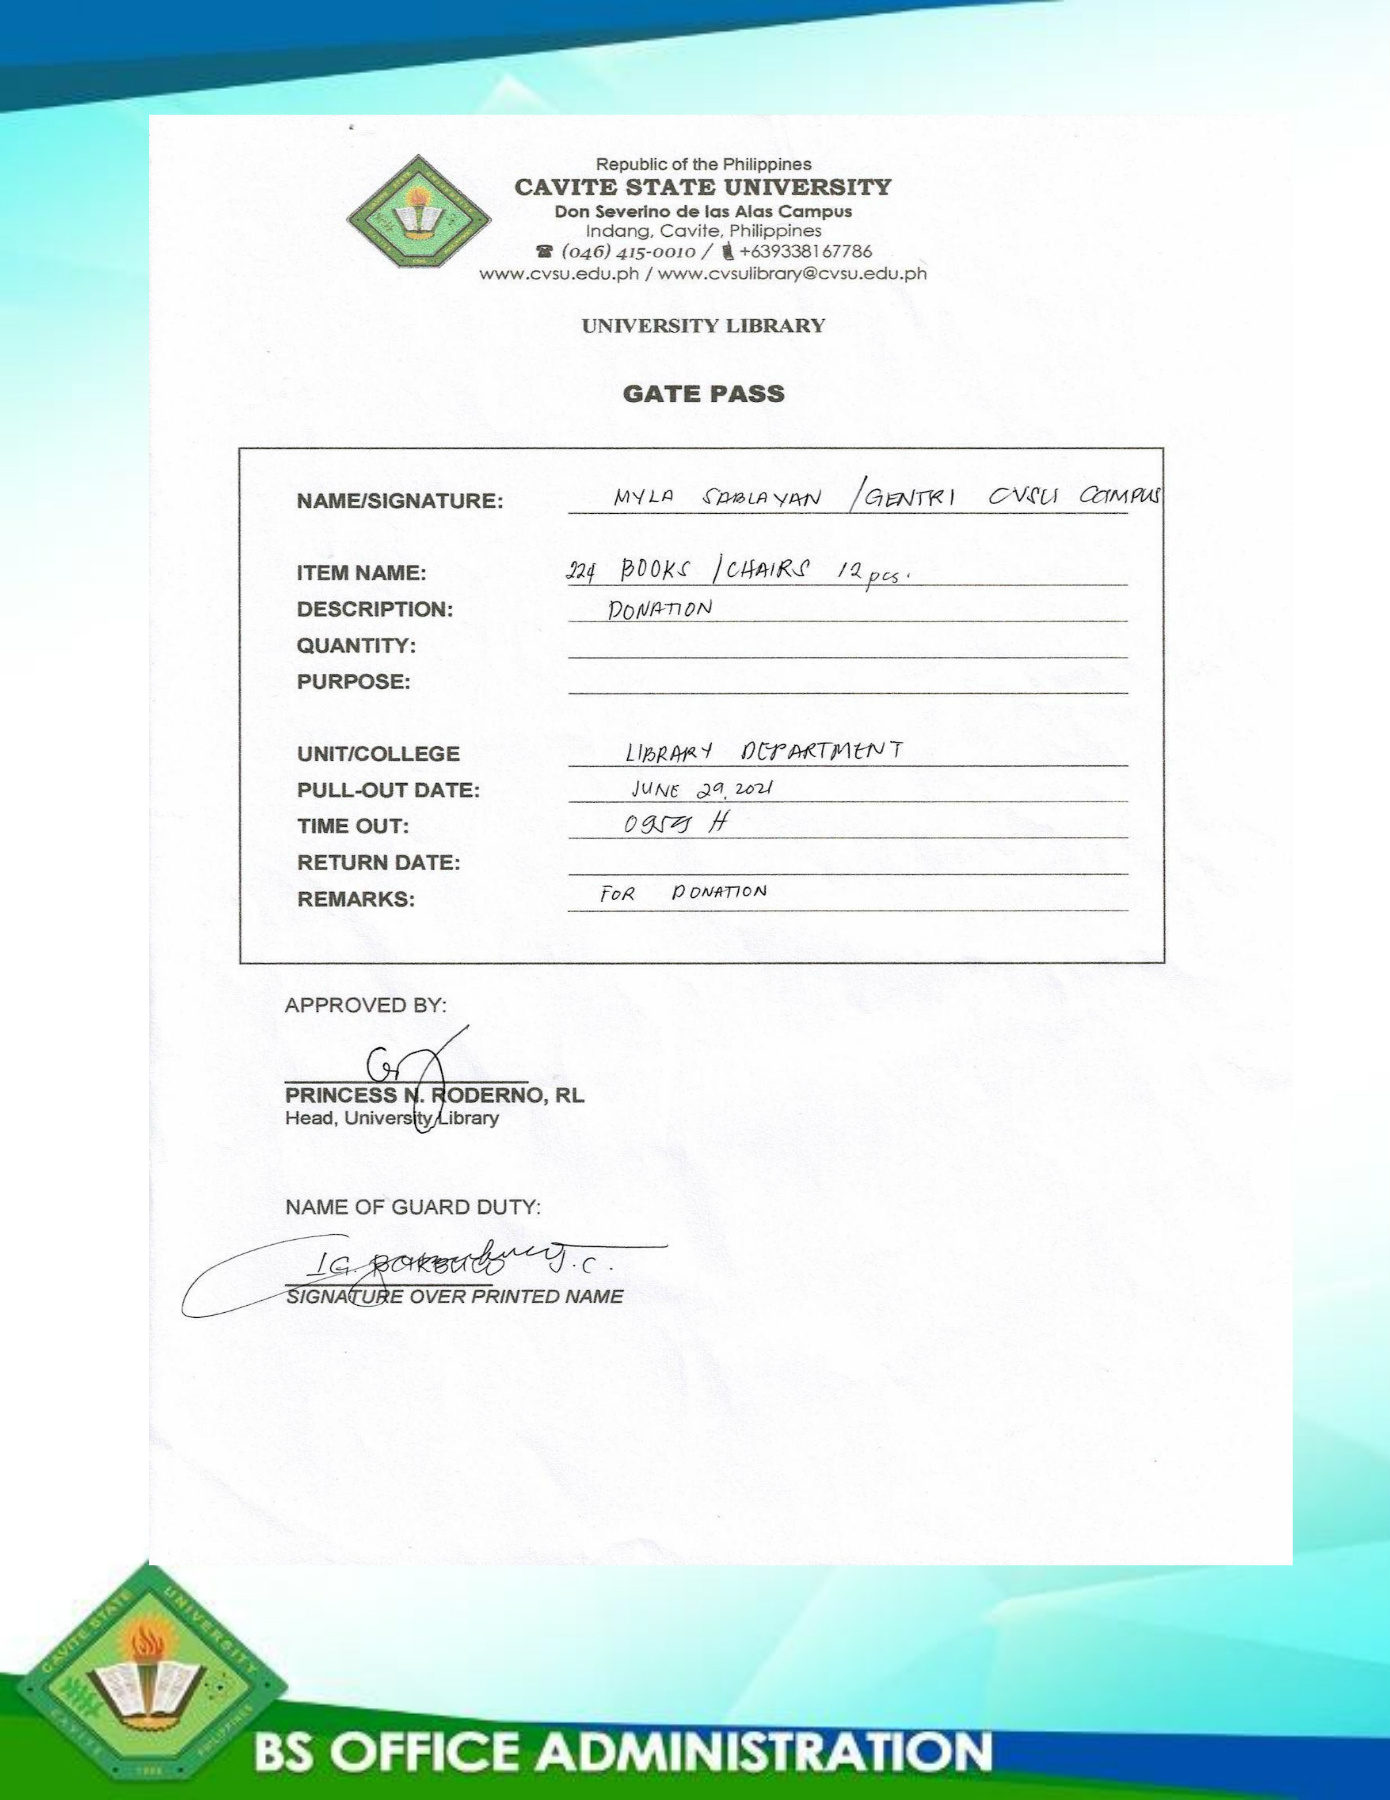 Republic of the Philippines
CAVITE STATE UNIVERSITY
Don Severino de las Alas Campus
Indang, Cavite, Philippines
☎ (046) 415-0010 / 📱 +639338167786
www.cvsu.edu.ph / www.cvsulibrary@cvsu.edu.ph
UNIVERSITY LIBRARY
GATE PASS
NAME/SIGNATURE: MYLA SABLAYAN / GENTRI CVSU CAMPUS
ITEM NAME: 224 BOOKS / CHAIRS 12 pcs.
DESCRIPTION: DONATION
QUANTITY:
PURPOSE:
UNIT/COLLEGE LIBRARY DEPARTMENT
PULL-OUT DATE: JUNE 29, 2021
TIME OUT: H
RETURN DATE:
REMARKS: FOR DONATION
APPROVED BY:
PRINCESS N. RODERNO, RL
Head, University Library
NAME OF GUARD DUTY:
SIGNATURE OVER PRINTED NAME
CAVITE STATE UNIVERSITY
CAVITE PHILIPPINES
1906
BS OFFICE ADMINISTRATION